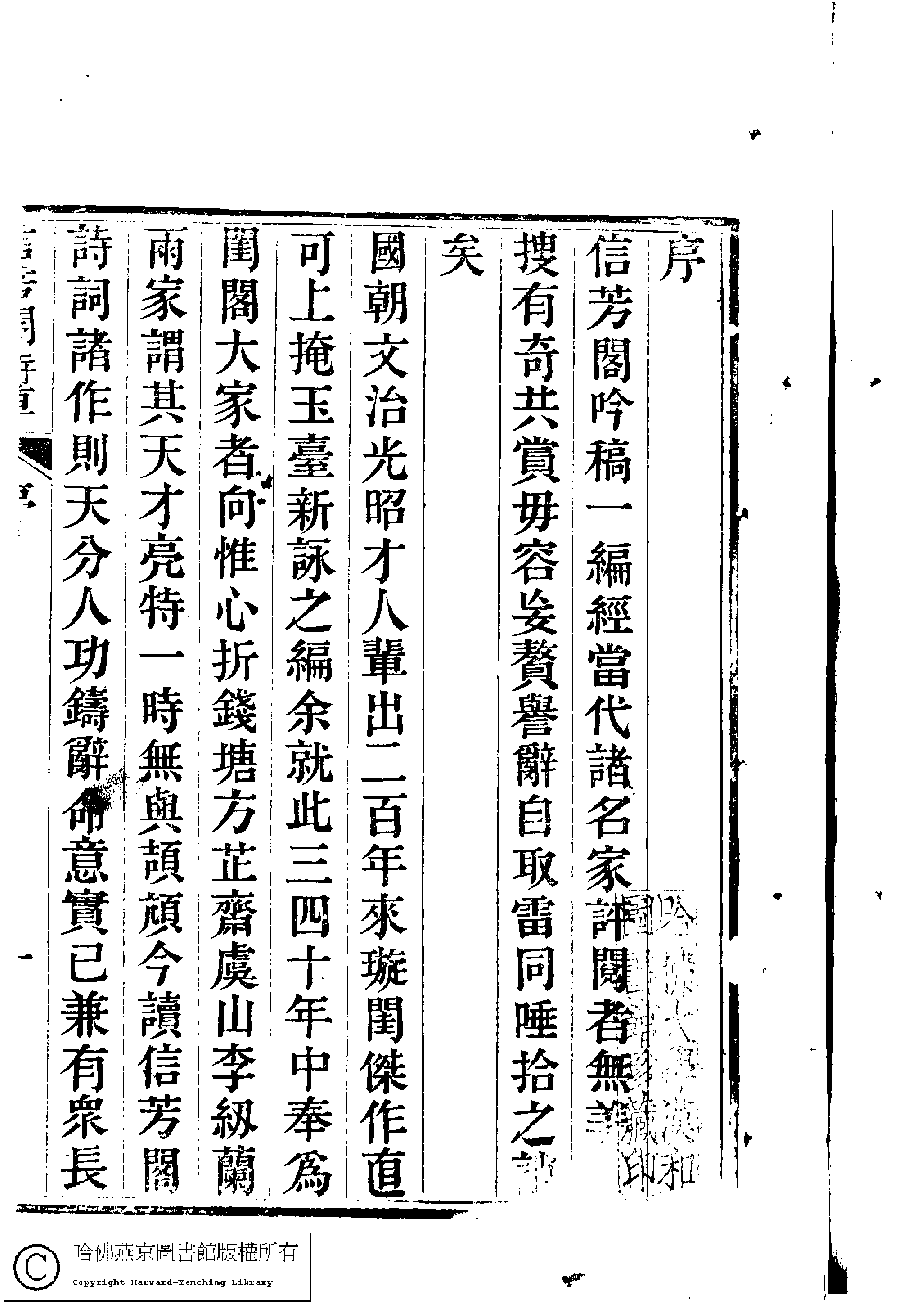 序
信芳閣吟稿一編經當代諸名家評閱者無義
搜有奇共賞毋容妄贅譽辭自取雷同唾拾之
矣
國朝文治光昭才人輩出二百年來璇閨傑作直
可上掩玉臺新詠之編余就此三四十年中奉爲
閨閣大家者向惟心折錢塘方芷齋虞山李紉蘭
兩家謂其天才亮特一時無與頡頏今讀信芳閣
詩詞諸作則天分人功鑄辭命意實已兼有眾長
哈佛大學漢和
圖書館珍藏印
哈佛燕京圖書館版權所有
Copyright Harvard-Yenching Library